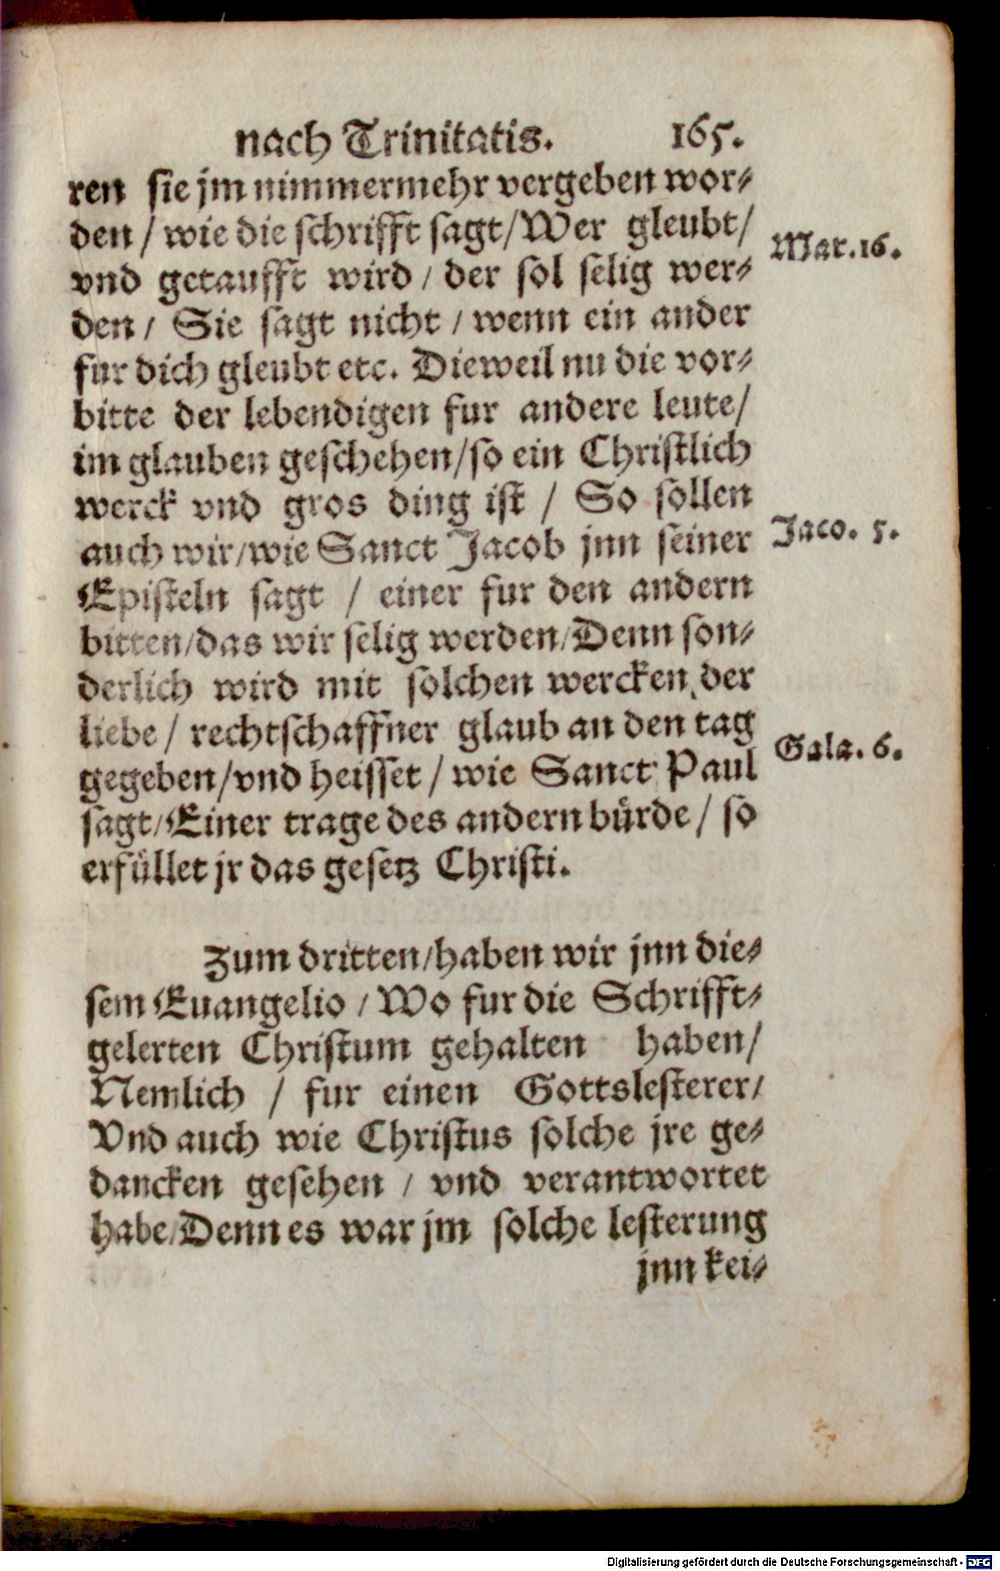 nach Trinitatis. 165.
ren sie jm nimmermehr vergeben wor⸗
den / wie die schrifft sagt / Wer gleubt /
Mar. 16.
vnd getaufft wird / der sol selig wer⸗
den / Sie sagt nicht / wenn ein ander
fur dich gleubt etc. Dieweil nu die vor⸗
bitte der lebendigen fur andere leute /
im glauben geschehen / so ein Christlich
werck vnd gros ding ist / So sollen
auch wir / wie Sanct Jacob jnn seiner
Jaco. 5.
Episteln sagt / einer fur den andern
bitten / das wir selig werden / Denn son⸗
derlich wird mit solchen wercken der
liebe / rechtschaffner glaub an den tag
gegeben / vnd heisset / wie Sanct Paul
Gala. 6.
sagt / Einer trage des andern bürde / so
erfüllet jr das gesetz Christi.
Zum dritten / haben wir jnn die⸗
sem Euangelio / Wo fur die Schrifft⸗
gelerten Christum gehalten haben /
Nemlich / fur einen Gottslesterer /
Vnd auch wie Christus solche jre ge⸗
dancken gesehen / vnd verantwortet
habe / Denn es war jm solche lesterung
jnn kei⸗
Digitalisierung gefördert durch die Deutsche Forschungsgemeinschaft - DFG